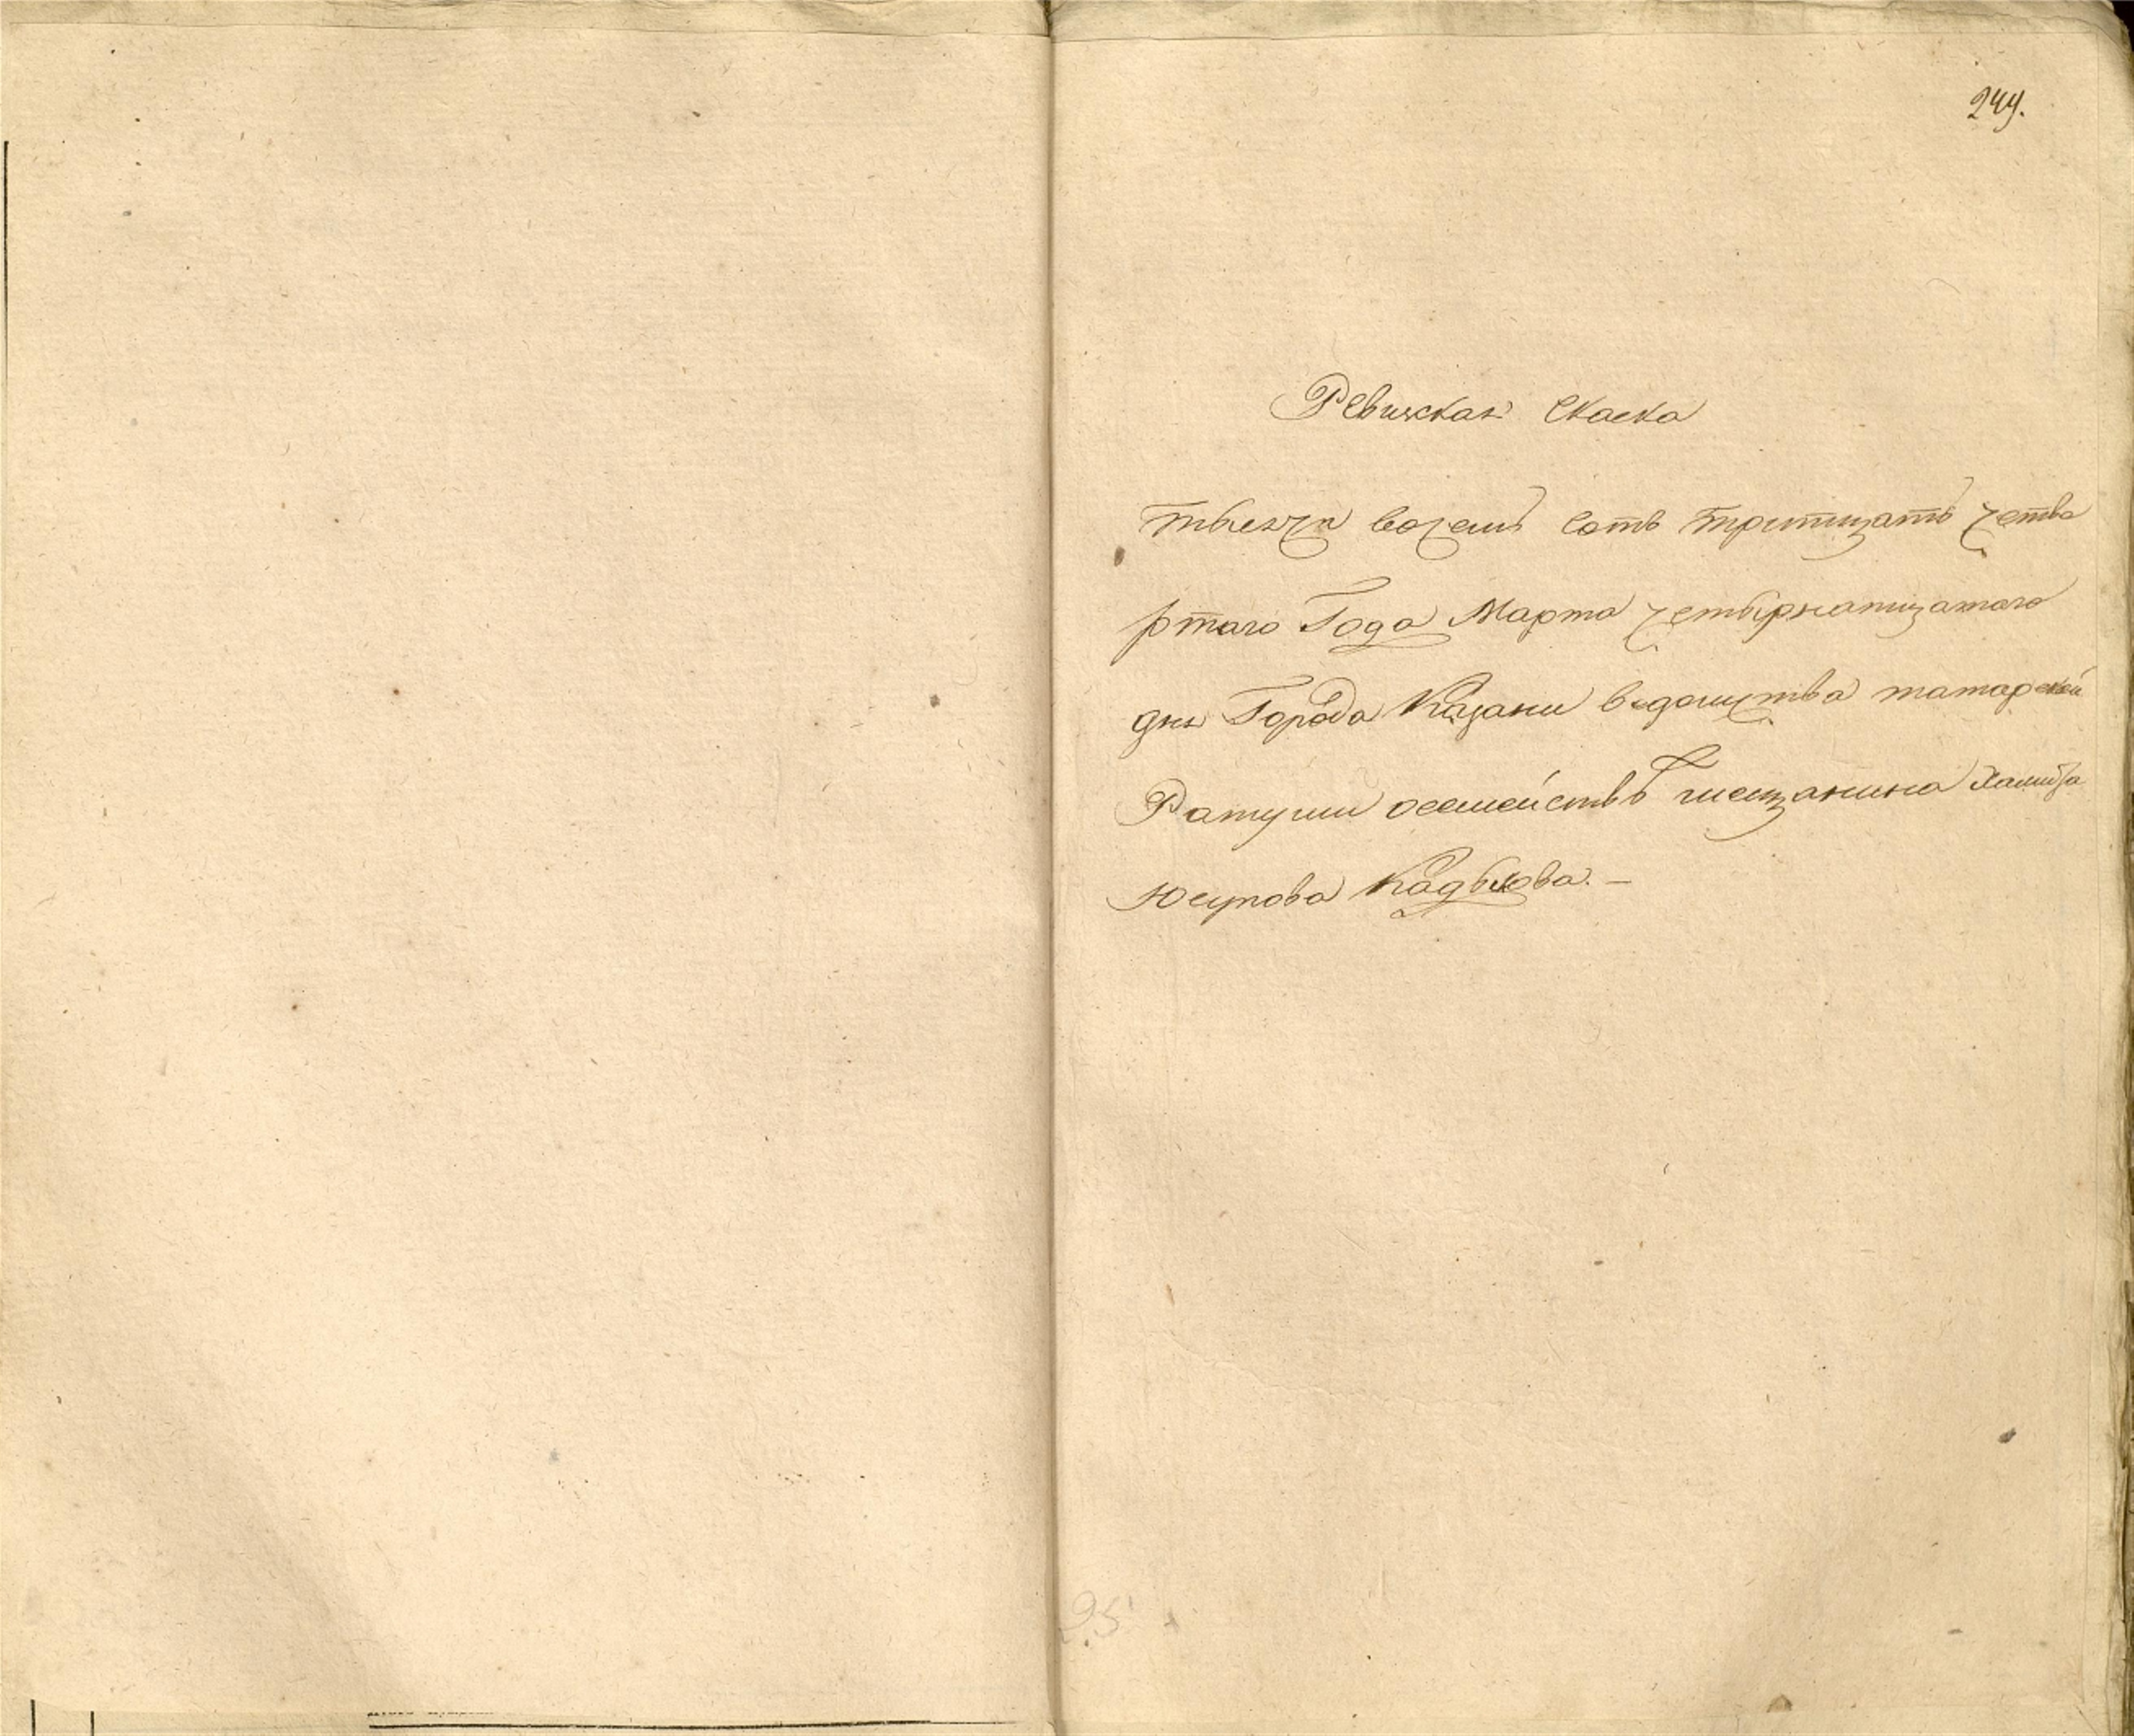 249.
Ревижская Скаска
тысяча восемь сотъ тритцать четве
ртаго Года Марта четырнатцатаго
дня Города Казани ведомства татарской
Ратуши осемействѣ мещанина Хамитза
Юсупова Кадыкова. —
25